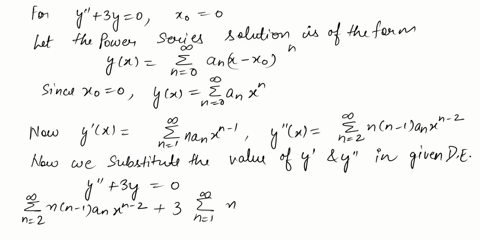 For y'' + 3y = 0, x₀ = 0
Let the Power Series solution is of the form
y(x) = ∑_{n=0}^{∞} aₙ(x-x₀)ⁿ
Since x₀=0, y(x) = ∑_{n=0}^{∞} aₙ xⁿ
Now y'(x) = ∑_{n=1}^{∞} naₙxⁿ⁻¹, y''(x) = ∑_{n=2}^{∞} n(n-1)aₙxⁿ⁻²
Now we substitute the value of y' & y'' in given D.E.
y'' + 3y = 0
∑_{n=2}^{∞} n(n-1)aₙxⁿ⁻² + 3 ∑_{n=1}^{∞} n